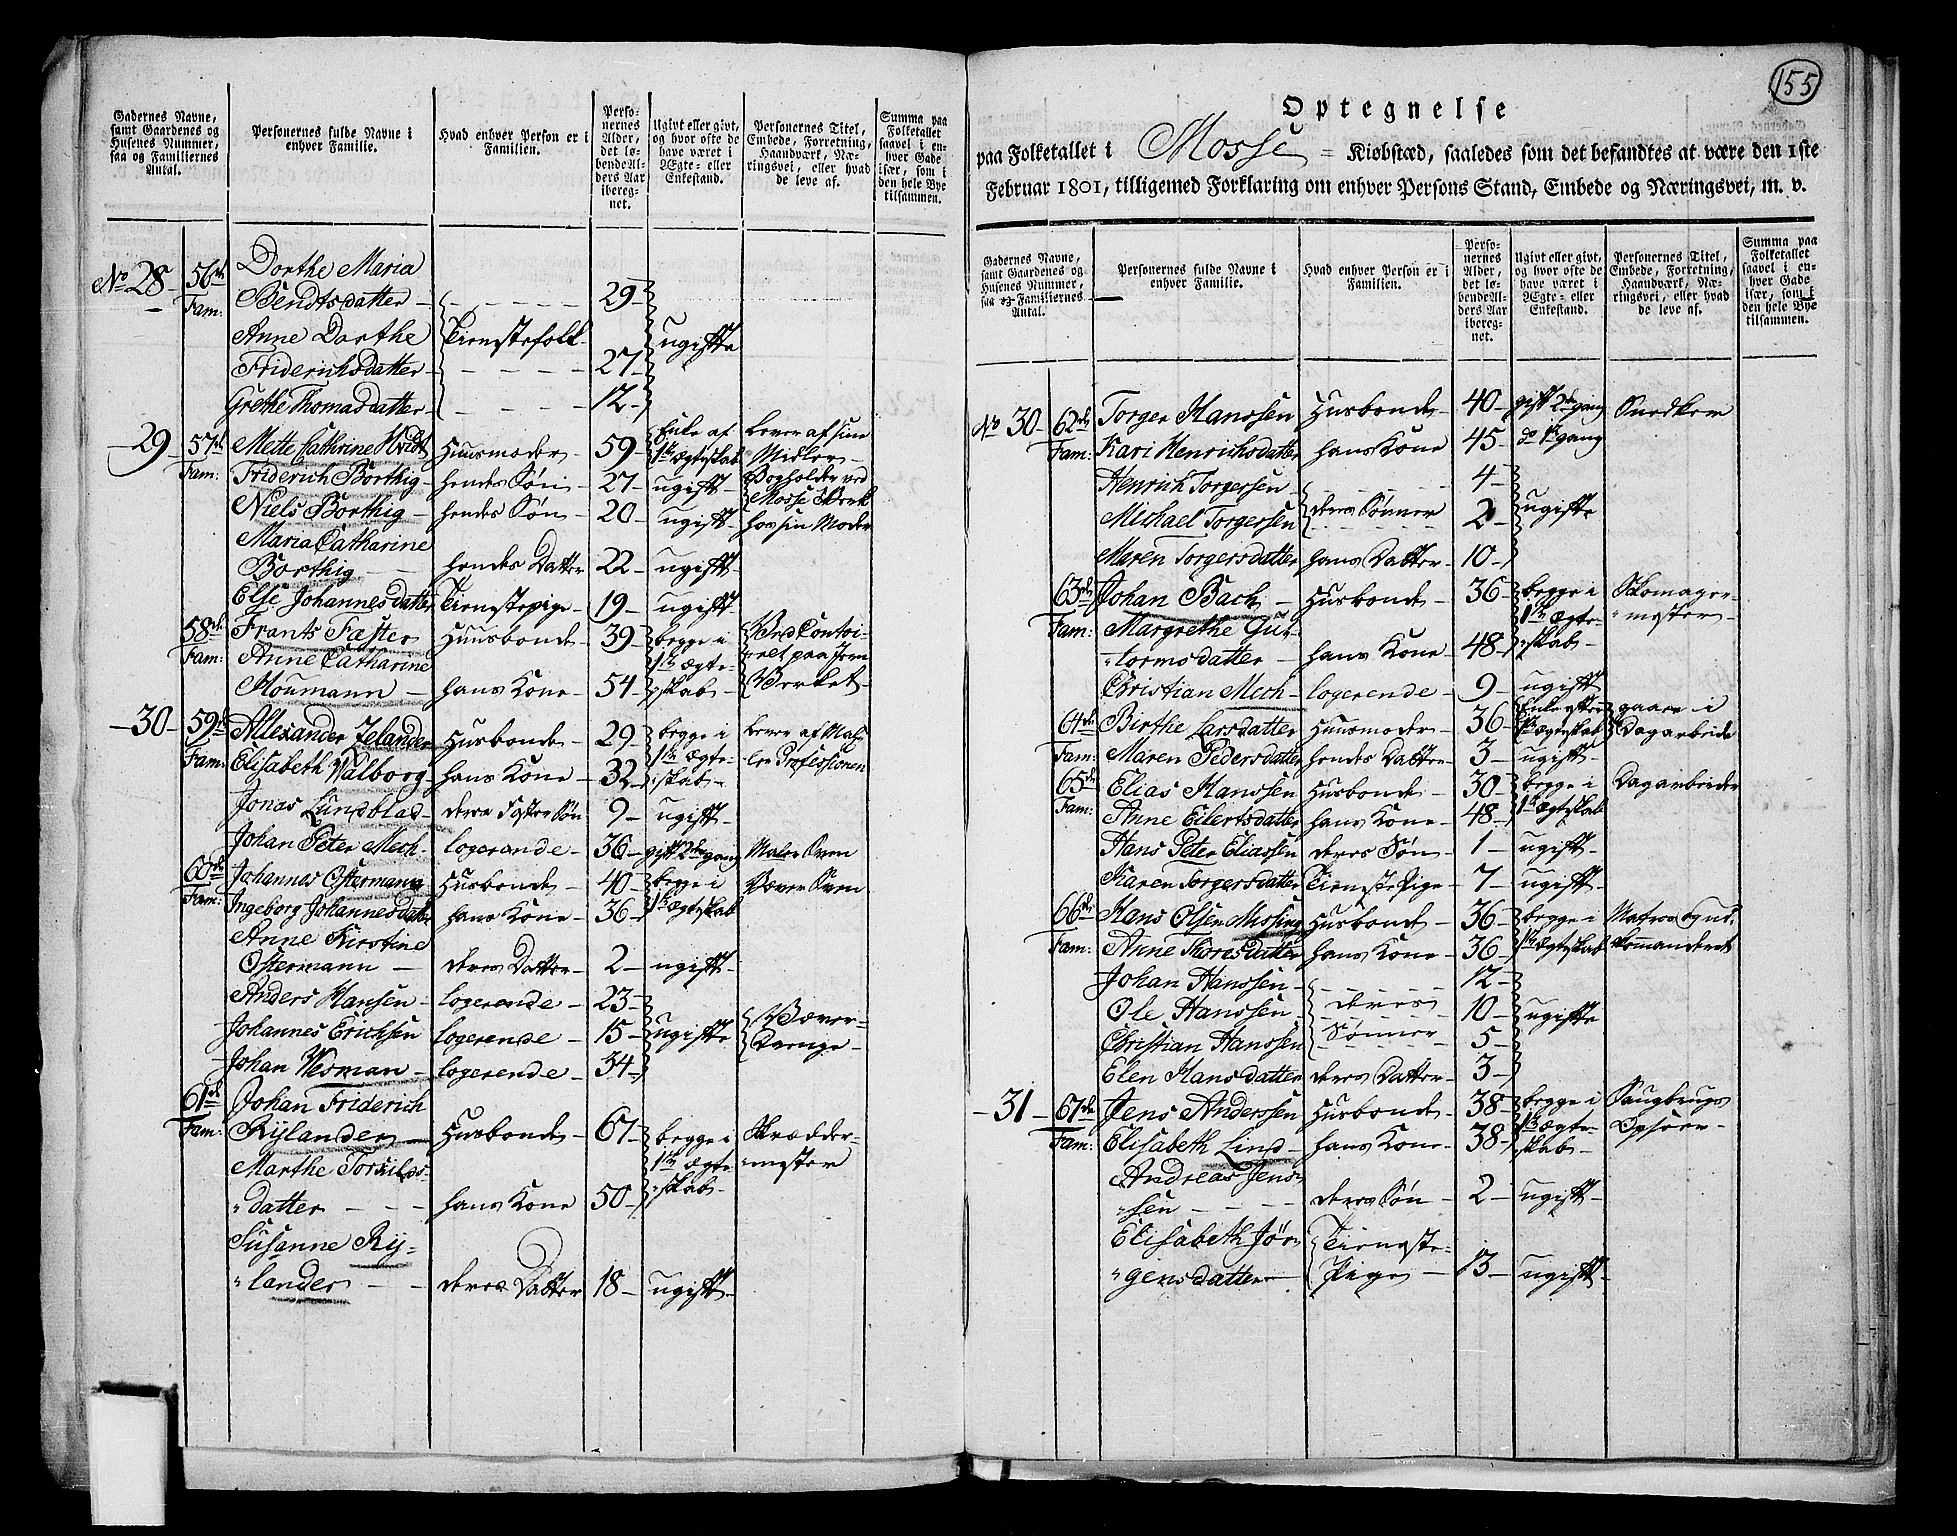 Gadernes Navne, samt Gaardenes og Husenes Nummer, saa og Familiernes Antal.
Personernes fulde Navne i enhver Familie.
Hvad enhver Person er i Familien.
Personernes Alder, det løbende Alders Aar iberegnet.
Ugivt eller givt, og hvor ofte de have været i Ægte- eller Enkestand.
Personernes Titel, Embede, Forretning, Haandværk, Næringsvei, eller hvad de leve af.
Summa paa Folketallet saavel i enhver Gade især, som i den hele Bye tilsammen.
No 28 - 56de Fam: Dorthe Maria
Bendtsdatter - 29 -
Anne Dorthe Tienestefolk ugifte
Friderichsdatter - 27 -
Grethe Thomasdatter - 12 -
- 29 - 57de Fam: Mette Cathrine Huusmoder - 59 - Enke af 1te Ægteskab Lever af sine Midler -
Friderich Borthig - hendes Søn - 27 - ugift - Bogholder ved Mosse Werk
Niels Borthig - hendes Søn - 20 - ugift - hos sin Moder
Maria Catharine
Borthig - hendes Datter 22 - ugift -
Else Johannesdatter Tienestepige - 19 - ugift -
58de Fam: Frants Faster Huusbonde - 39 - begge i 1te Ægteskab - Ved Contoiret paa Jern Verket -
Anne Catharine
Moumann - hans Kone - 54 -
- 30 - 59de Fam: Allexander Zelander Husbonde - 29 - begge i 1te Ægteskab - Lever af Maler Professionen
Elisabeth Valborg - hans Kone - 32 -
Jonas Lundblad - deres Foster Søn 9 - ugift -
Johan Peter Mech - logerende - 36 - gift 2de gang Maler Sven
60de Fam: Johannes Ostermann Husbonde - 40 - begge i 1te Ægteskab Væver Sven
Ingeborg Johannesdatter hans Kone - 36 -
Anne Kirstine
Ostermann - deres Datter - 2 - ugift -
Anders Hansen - logerende - 23 -
Johannes Erichsen logerende - 15 - ugifte Væver-Drenge -
Johan Wesman - logerende - 34 -
61de Fam: Johan Friderich
Rylander - Husbonde - 67 - begge i 1te Ægteskab - Skræddermester
Marthe Torkilds-
datter - hans Kone 50 -
Susanne Ry-
lander - deres Datter 18 - ugift -
155
Optegnelse
paa Folketallet i Mosse Kiøbstæd, saaledes som det befandtes at være den 1ste
Februar 1801, tilligemed Forklaring om enhver Persons Stand, Embede og Næringsvei, m. v.
Gadernes Navne, samt Gaardenes og Husenes Nummer, saa og Familiernes Antal.
Personernes fulde Navne i enhver Familie.
Hvad enhver Person er i Familien.
Personernes Alder, det løbende Alders Aar iberegnet.
Ugivt eller givt, og hvor ofte de have været i Ægte- eller Enkestand.
Personernes Titel, Embede, Forretning, Haandværk, Næringsvei, eller hvad de leve af.
Summa paa Folketallet saavel i enhver Gade især, som i den hele Bye tilsammen.
No 30 - 62de Fam: Torger Hanssen Husbonde - 40 - gift 2de gang Snedker
Kari Henrichsdatter hans Kone 45 - do 1te gang
Henrich Torgersen - 4 -
Michael Torgersen deres Sønner 2 - ugifte
Maren Torgersdatter hans Datter - 10 -
63de Fam: Johan Bach - Husbonde - 36 - begge i 1te Ægteskab - Skomagermester -
Margrethe Gut-
tormsdatter - hans Kone - 48 -
Christian Mech - logerende - 9 - ugift
64de Fam: Birthe Larsdatter Huusmoder - 36 - Enke efter 1te Ægteskab gaaer i Dagarbeide
Maren Pedersdatter hendes Datter - 3 - ugift -
65de Fam: Elias Hanssen Husbonde - 30 - begge i 1te Ægteskab Dagarbeider
Anne Eilertsdatter hans Kone - 48 -
Hans Peter Eliassen deres Søn - 1 - ugift -
Karen Torgersdatter Tieneste Pige - 7 - ugift -
66de Fam: Hans Olsen Mossing Husbonde - 36 - begge i 1te Ægteskab Matros
Anne Thoresdatter hans Kone - 36 -
Johan Hanssen - 12 -
Ole Hanssen - deres 10 - ugifte
Christian Hanssen Sønner 5 -
Elen Hansdatter deres Datter - 3 -
- 31 - 67de Fam: Jens Anderssen Husbonde - 38 - begge i 1te Ægteskab - Saugbrugs Opsöer -
Elisabeth Lind - hans Kone - 38 -
Andreas Jens-
sen - deres Søn - 2 - ugift -
Elisabeth Jør- Tieneste-
gensdatter - Pige - 13 - ugift -